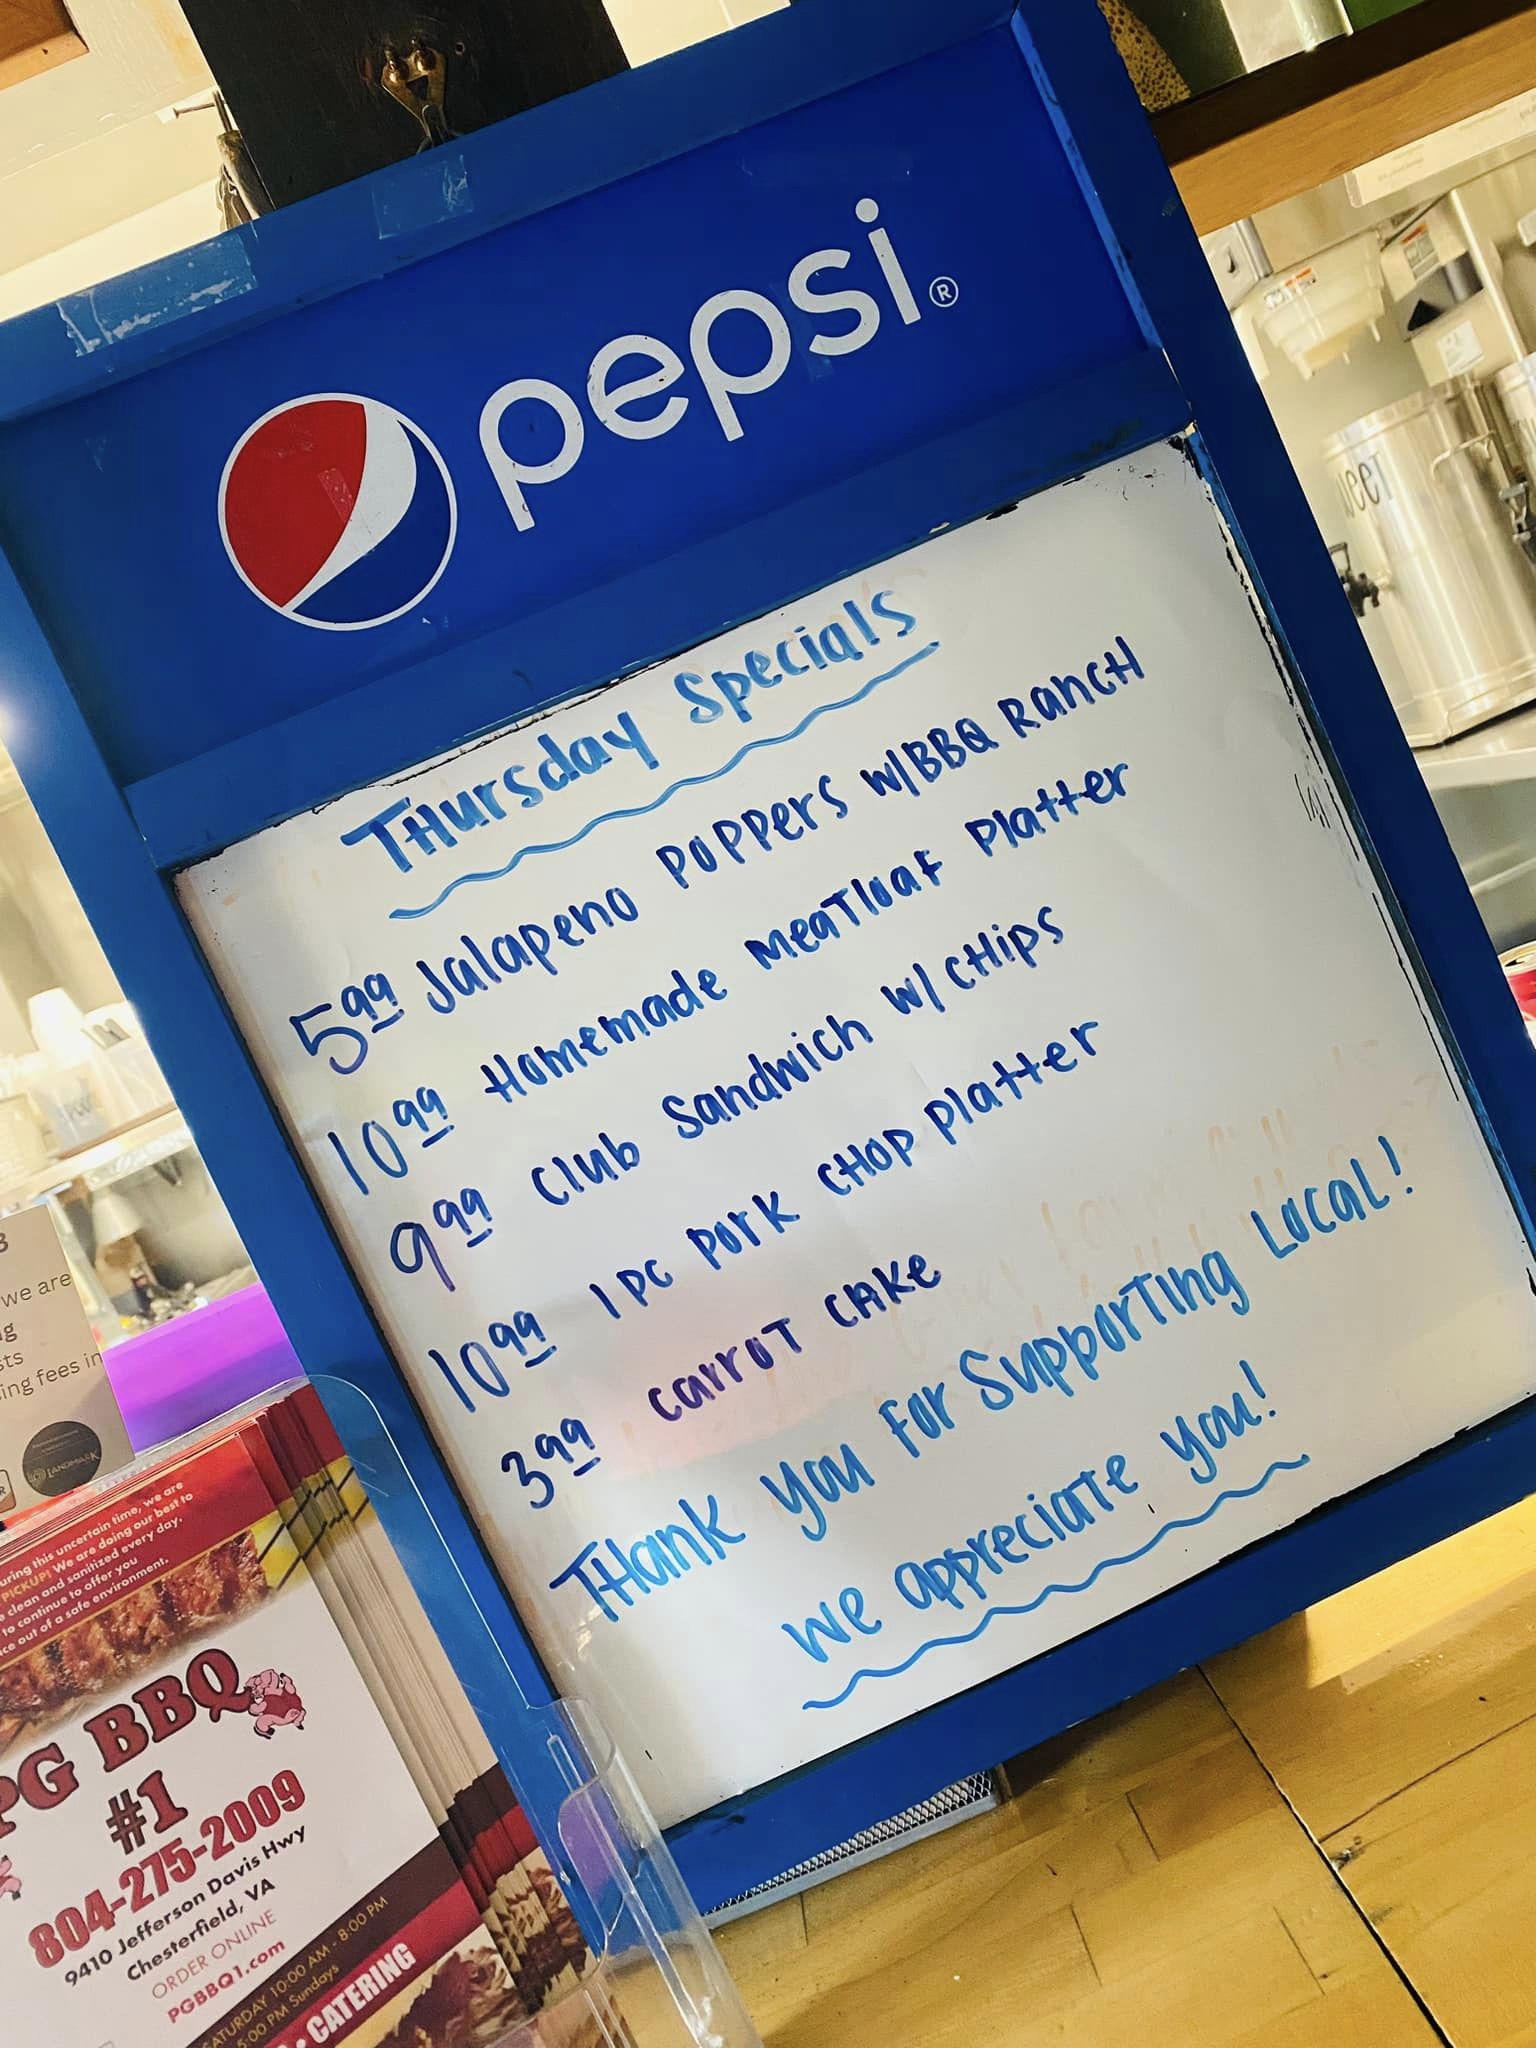 pepsi®
Thursday Specials
5.99 Jalapeno Poppers w/BBQ Ranch
10.99 Homemade Meatloaf Platter
9.99 Club Sandwich w/ Chips
10.99 1 pc Pork Chop Platter
3.99 Carrot Cake
Thank you For Supporting Local!
We appreciate you!
we are
sts
ing fees in
LANDMARK
uring this uncertain time, we are
PICKUP! We are doing our best to
clean and sanitized every day.
to continue to offer you
ce out of a safe environment.
PG BBQ
#1
804-275-2009
9410 Jefferson Davis Hwy
Chesterfield, VA
ORDER ONLINE
PGBBQ1.com
SATURDAY 10:00 AM - 8:00 PM
5:00 PM Sundays
• CATERING